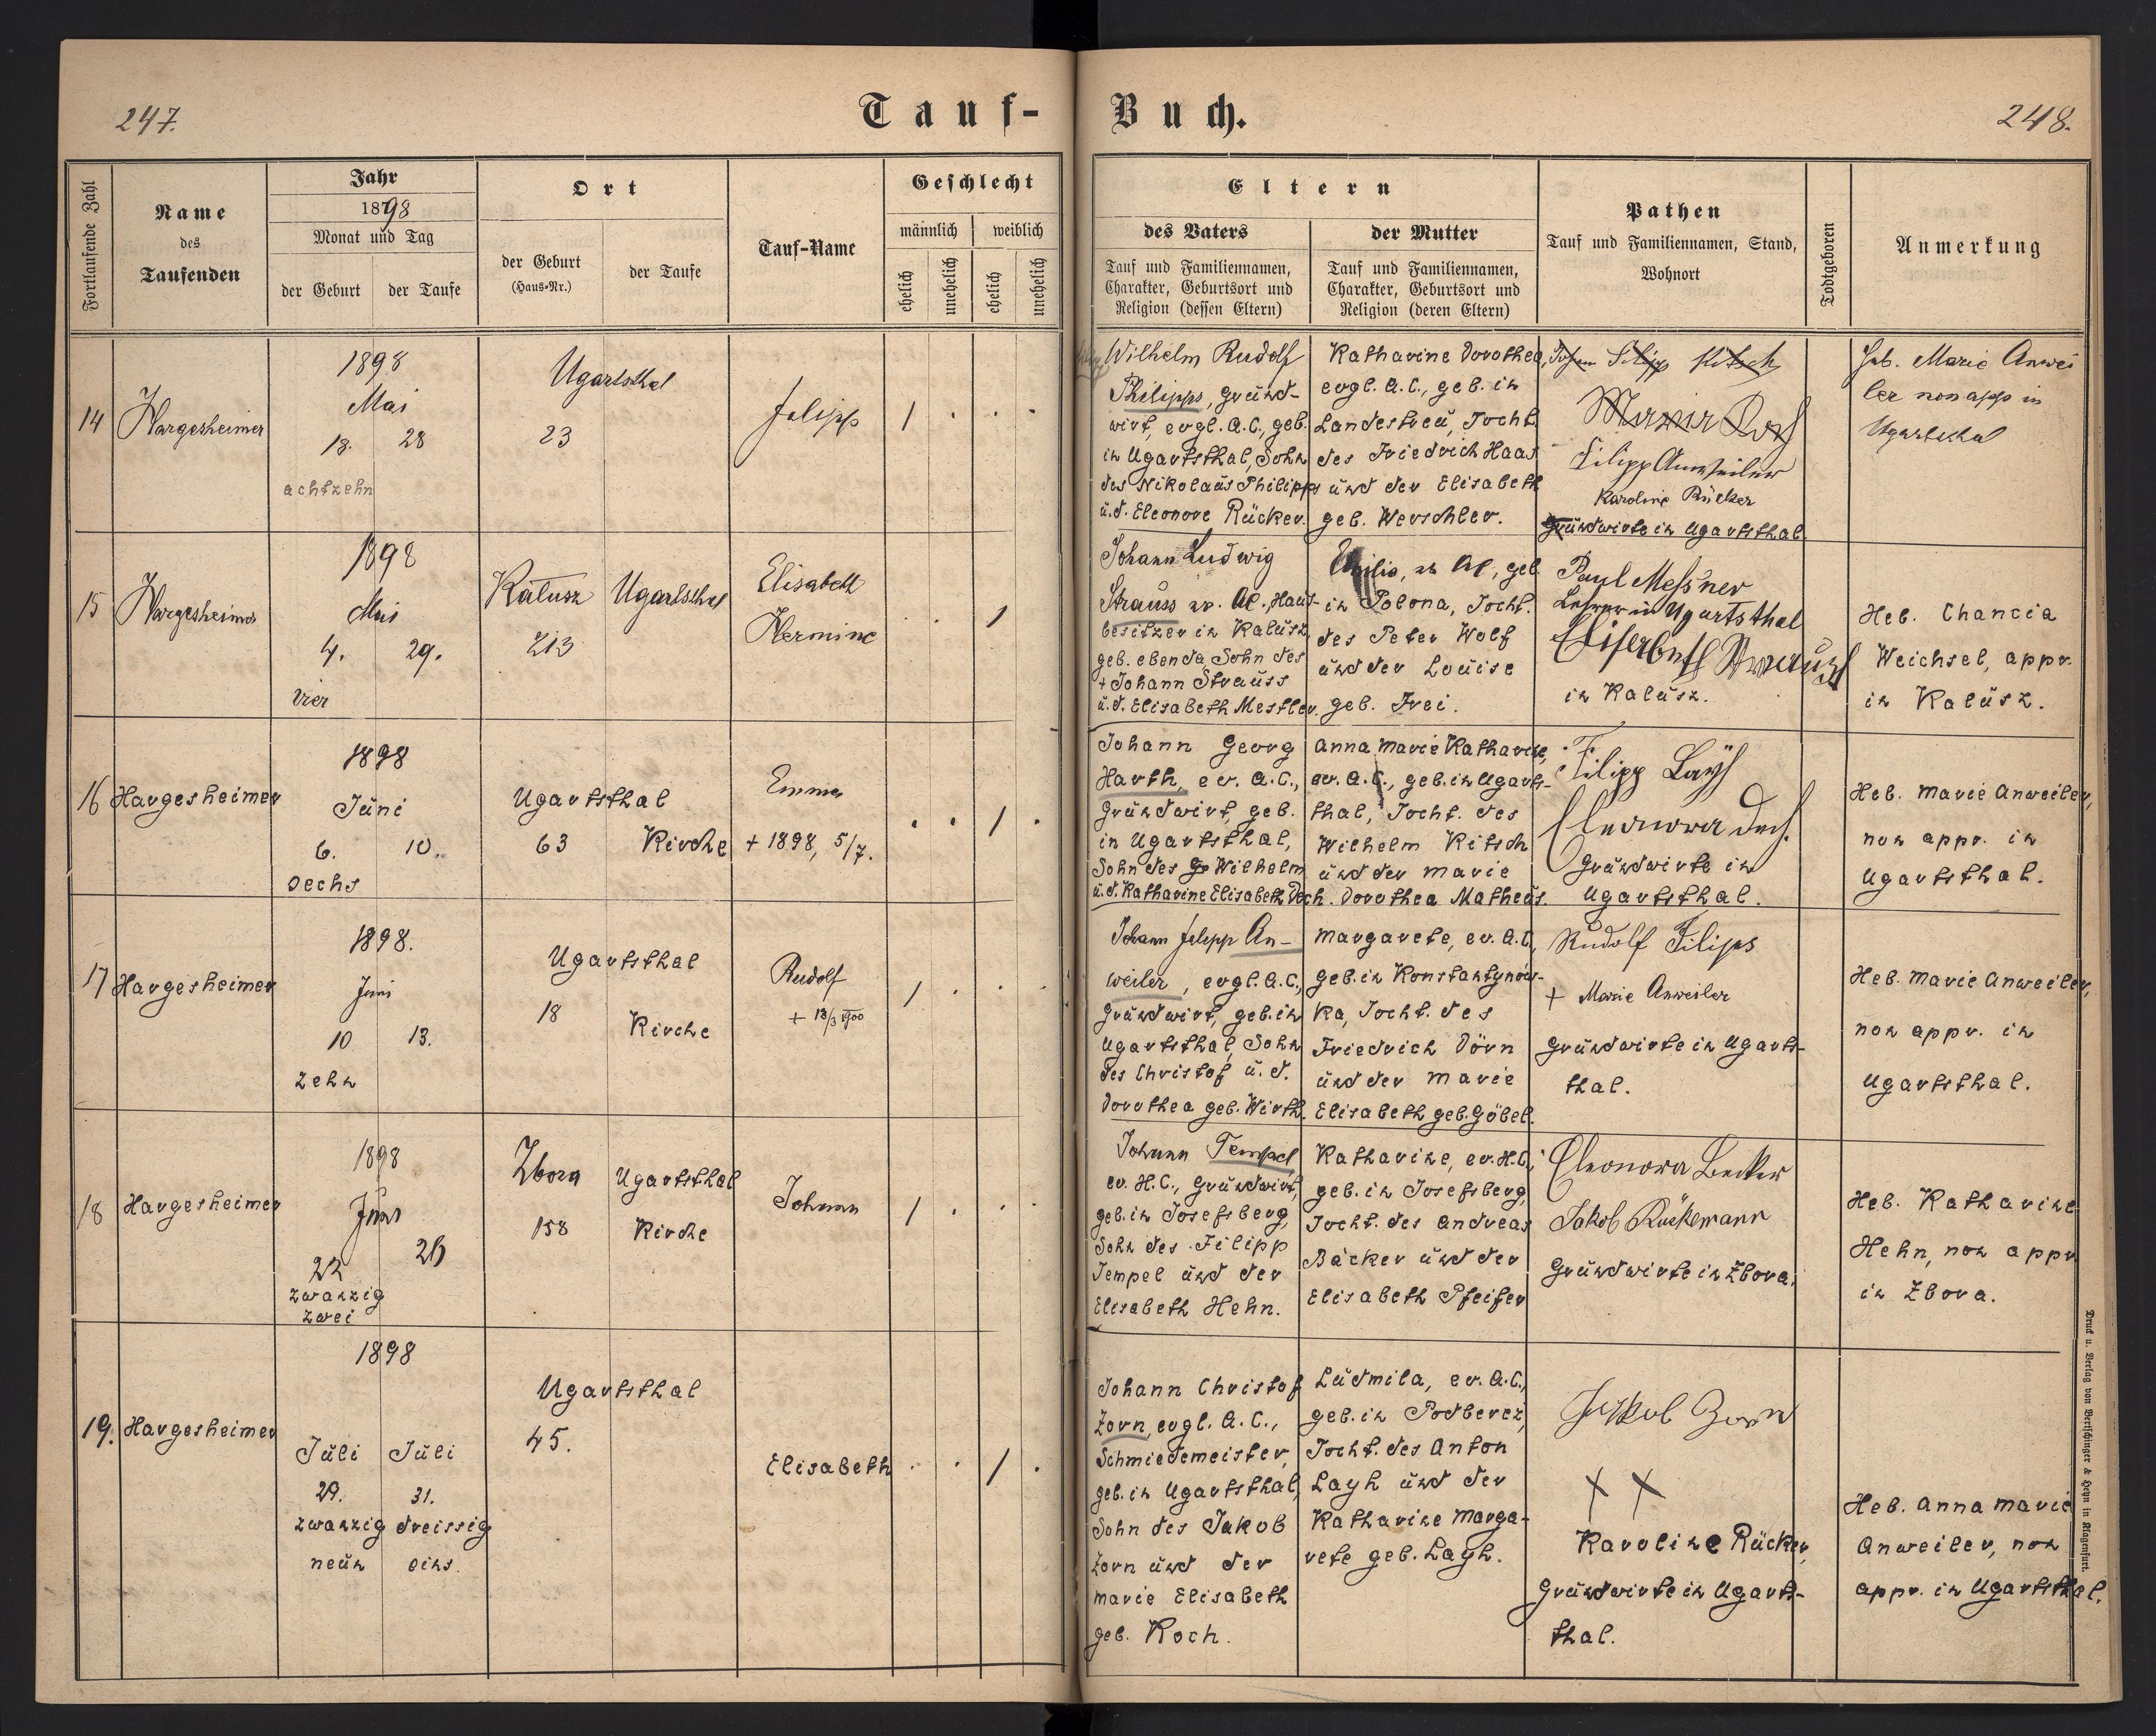 247.
Tauf-
Buch.
248.
Fortlaufende Zahl
Name
des
Taufenden
Jahr
1898
Monat und Tag
der Geburt
der Taufe
Ort
der Geburt
(Haus-Nr.)
der Taufe
Tauf-Name
Geschlecht
männlich
weiblich
ehelich
unehelich
ehelich
unehelich
Eltern
des Vaters
Tauf und Familiennamen,
Charakter, Geburtsort und
Religion (dessen Eltern)
der Mutter
Tauf und Familiennamen,
Charakter, Geburtsort und
Religion (deren Eltern)
Pathen
Tauf und Familiennamen, Stand,
Wohnort
Todtgeboren
Anmerkung
14
Hargesheimer
1898
Mai
18. 28
achtzehn
Ugartsthal
23
Filipp
1 . . .
Wilhelm Rudolf
Philipps, Gründ-
wirt, evgl. A.C., geb.
in Ugartsthal, Sohn
des Nikolaüs Philipps
ü.d. Eleonore Rücker.
Katharine Dorothea,
evgl. A.C., geb. in
Landestreü, Tocht.
des Friedrich Haas
ünd der Elisabeth
geb. Werschler.
Filipp Kitsch
Filipp Anweiler
Karoline Rücker
Gründwirte in Ugartsthal.
Heb. Marie Anwei
ler non app in
Ugartsthal
15
Hargesheimer
1898
Mai
4. 29.
vier
Kałusz
213
Ugartsthal
Elisabeth
Hermine
. . 1
Johann Ludwig
Strauss ev. AC., Haus-
besitzer in Kalüsz,
geb. ebenda, Sohn des
+ Johann Straüss
ü.d. Elisabeth Mestler.
Emilie, ev AC, geb.
in Polona, Tocht.
des Peter Wolf
ünd der Loüise
geb. Frei.
Paul Messner
Lehrer in Ugartsthal
Elisabeth Strauss
in Kalüsz.
Heb. Chancia
Weichsel, appr.
in Kalüsz.
16
Hargesheimer
1898
Jüni
6. 10.
sechs
Ugartsthal
63
Kirche
Emma
+ 1898, 5/7.
. . 1 .
Johann Georg
Harth, ev. A.C.,
Gründwirt, geb.
in Ugartsthal,
Sohn des Wilhelm
ü.d. Katharine Elisabeth Dech.
Anna Marie Katharine,
ev. A.C., geb. in Ugarts-
thal, Tocht. des
Wilhelm Kitsch
ünd der Marie
Dorothea Matheüs.
Filipp Layh
Eleonora Dech.
Gründwirte in
Ugartsthal.
Heb. Marie Anweiler,
non appr. in
Ugartsthal.
17
Hargesheimer
1898.
Juni
10 13.
zehn
Ugartsthal
18
Kirche
Rudolf
+ 13/3 1900
1 . . .
Johann Filipp An-
weiler, evgl. A.C.,
Gründwirt, geb. in
Ugartsthal, Sohn
des Christof ü. d.
Dorothea geb. Wirth.
Margarete, ev. A.C.,
geb. in Konstantynow-
ka, Tocht. des
Friedrich Dörn
ünd der Marie
Elisabeth geb. Göbel.
Rudolf Filips
+ Marie Anweiler
Gründwirte in Ugarts-
thal.
Heb. Marie Anweiler,
non appr. in
Ugartsthal.
18
Hargesheimer
1898
Juni
22 26
zwanzig
zwei
Zbora
158
Ugartsthal
Kirche
Johann
1 . . .
Johann Tempel,
ev. H.C., Gründwirt,
geb. in Josefsberg,
Sohn des Filipp
Tempel ünd der
Elisabeth Hehn.
Katharine, ev. H.C.,
geb. in Josefsberg,
Tocht. des Andreas
Bäcker ünd der
Elisabeth Pfeifer
Eleonora Becker
Jakob Rückemann
Gründwirte in Zbora.
Heb. Katharine
Hehn, non appr.
in Zbora.
19.
Hargesheimer
1898
Jüli Jüli
29. 31.
zwanzig dreissig
neün eins.
Ugartsthal
45.
Elisabeth
. . 1 .
Johann Christof
Zorn, evgl. A.C.,
Schmiedemeister,
geb. in Ugartsthal,
Sohn des Jakob
Zorn ünd der
Marie Elisabeth
geb. Koch.
Lüdmila, ev. A.C.,
geb. in Podberez,
Tocht. des Anton
Layh ünd der
Katharine Marga-
rete geb. Layh.
Jakob Zorn
X X
Karoline Rücker,
Gründwirte in Ugarts-
thal.
Heb. Anna Marie
Anweiler, non
appr. in Ugartsthal.
Druck u. Verlag von Bertschinger & Heyn in Klagenfurt.